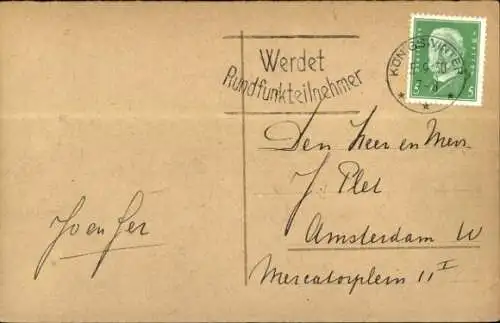 Werdet
Rundfunkteilnehmer
KÖNIGSWINTER
5
5
Den Heer en Mevr.
J. Plet
Amsterdam W
Mercatorplein 11 I
Jo en Ger